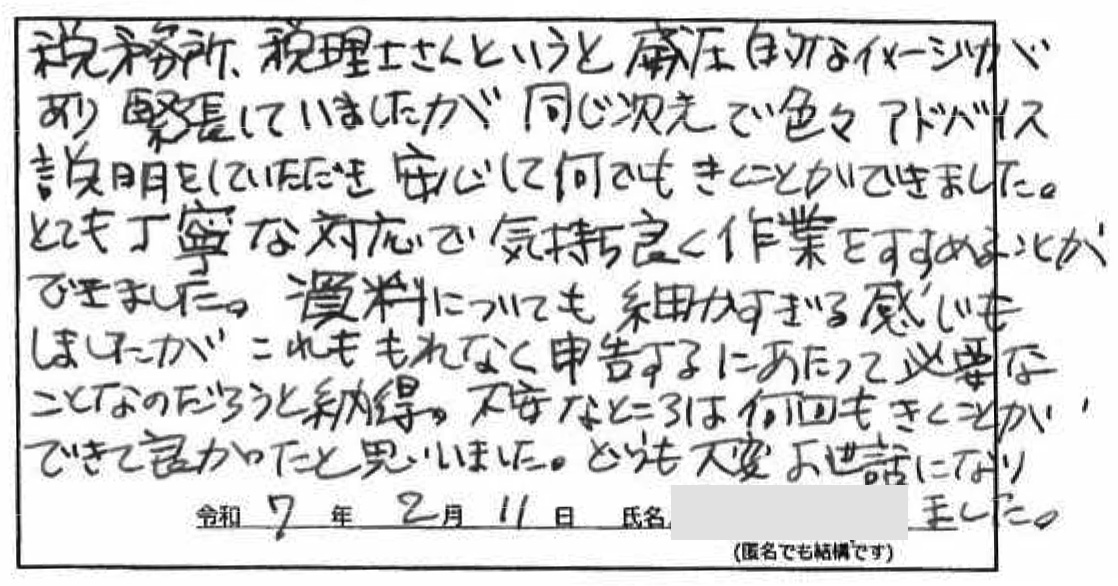 税務所、税理士さんというと威圧的なイメージが
あり緊張していましたが同じ次元で色々アドバイス
説明をしていただき安心して何でもきくことができました。
とても丁寧な対応で気持ち良く作業をすすめることが
できました。資料についても細かすぎる感じも
しましたがこれももれなく申告するにあたって必要な
ことなのだろうと納得。不安なところは何回もきくことが
できて良かったと思いました。どうも大変お世話になり
ました。
令和 7 年 2月 11 日 氏名
(匿名でも結構です)